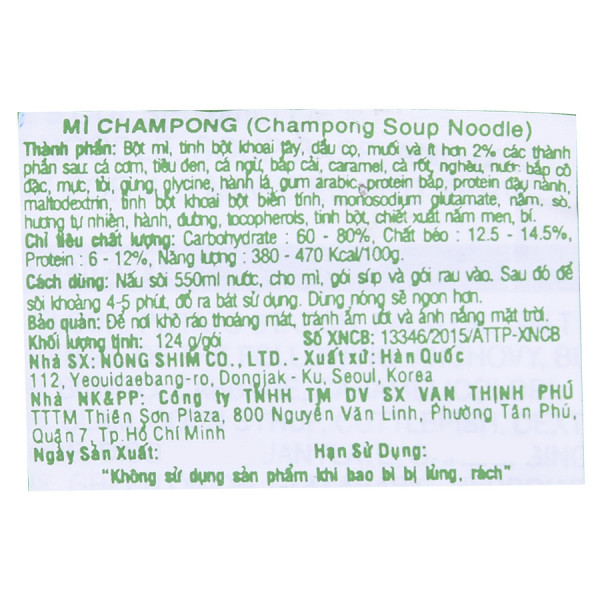 MÌ CHAMPONG (Champong Soup Noodle)
Thành phần: Bột mì, tinh bột khoai tây, dầu cọ, muối và ít hơn 2% các thành
phần sau: cá cơm, tiêu đen, cá ngừ, bắp cải, caramel, cà rốt, nghêu, nước bắp cô
đặc, mực, tỏi, gừng, glycine, hành lá, gum arabic, protein bắp, protein đậu nành,
maltodextrin, tinh bột khoai bột biến tính, monosodium glutamate, nấm, sò,
hương tự nhiên, hành, đường, tocopherols, tinh bột, chiết xuất nấm men, bí.
Chỉ tiêu chất lượng: Carbohydrate : 60 - 80%, Chất béo : 12.5 - 14.5%,
Protein : 6 - 12%, Năng lượng : 380 - 470 Kcal/100g.
Cách dùng: Nấu sôi 550ml nước, cho mì, gói súp và gói rau vào. Sau đó để
sôi khoảng 4-5 phút, đổ ra bát sử dụng. Dùng nóng sẽ ngon hơn.
Bảo quản: Để nơi khô ráo thoáng mát, tránh ẩm ướt và ánh nắng mặt trời.
Khối lượng tịnh: 124 g/gói Số XNCB: 13346/2015/ATTP-XNCB
Nhà SX: NONG SHIM CO., LTD. - Xuất xứ: Hàn Quốc
112, Yeouidaebang-ro, Dongjak - Ku, Seoul, Korea
Nhà NK&PP: Công ty TNHH TM DV SX VAN THỊNH PHÚ
TTTM Thiên Sơn Plaza, 800 Nguyễn Văn Linh, Phường Tân Phú,
Quận 7, Tp.Hồ Chí Minh
Ngày Sản Xuất: Hạn Sử Dụng:
"Không sử dụng sản phẩm khi bao bì bị lủng, rách"